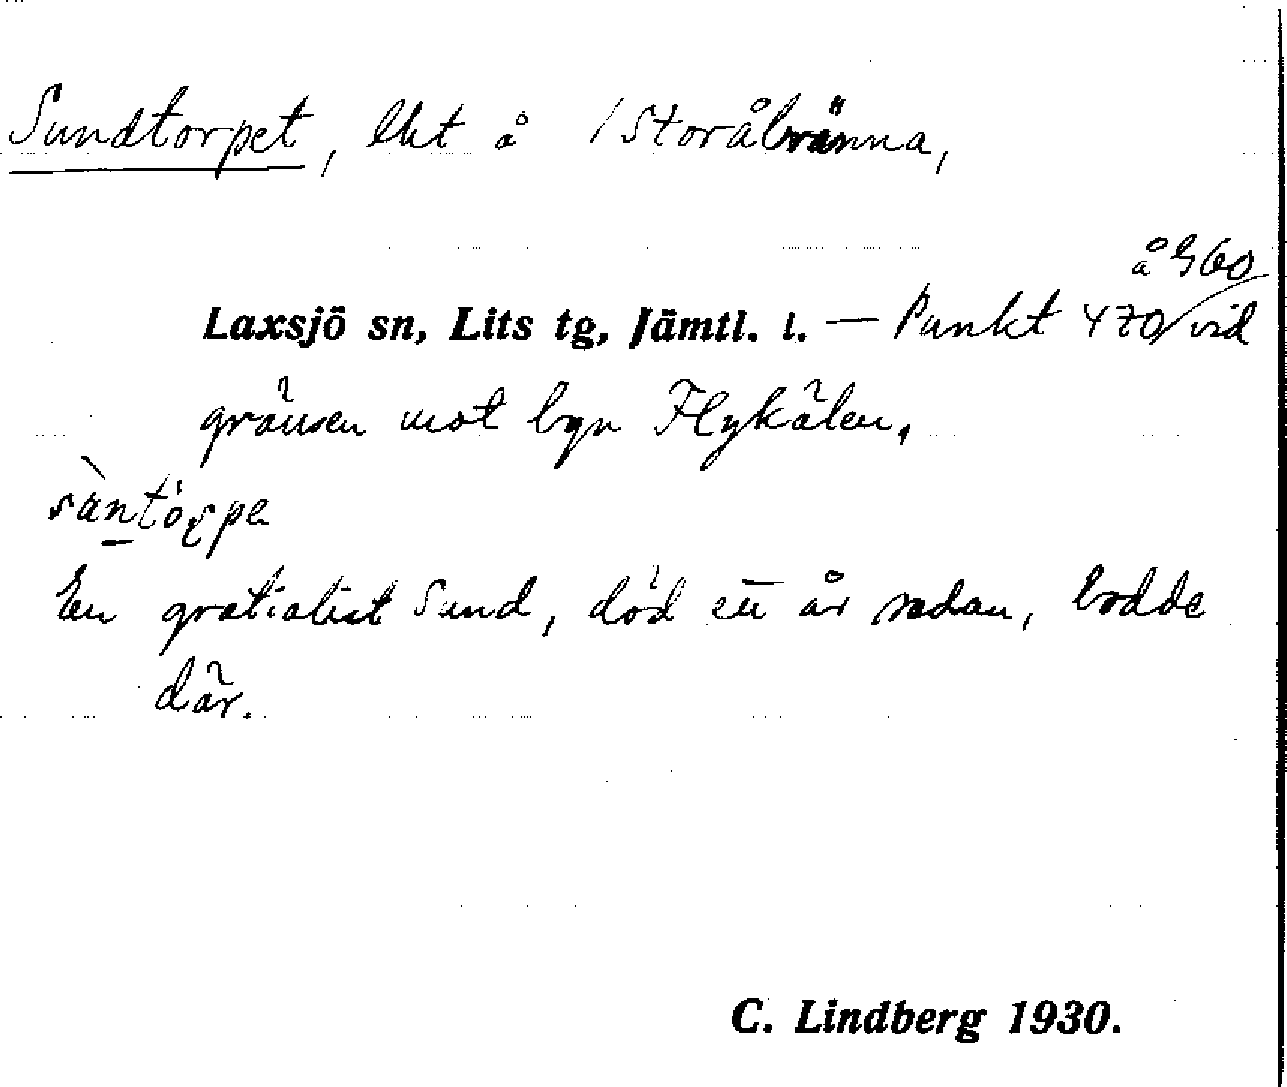 Sundtorpet, lht å /Storåbränna,
å G60
Laxsjö sn, Lits tg, Jämtl. l. — Punkt 470 vid
gränsen mot byn Flykälen.
En gratialist Sund, död ett år sedan, bodde
där.
C. Lindberg 1930.